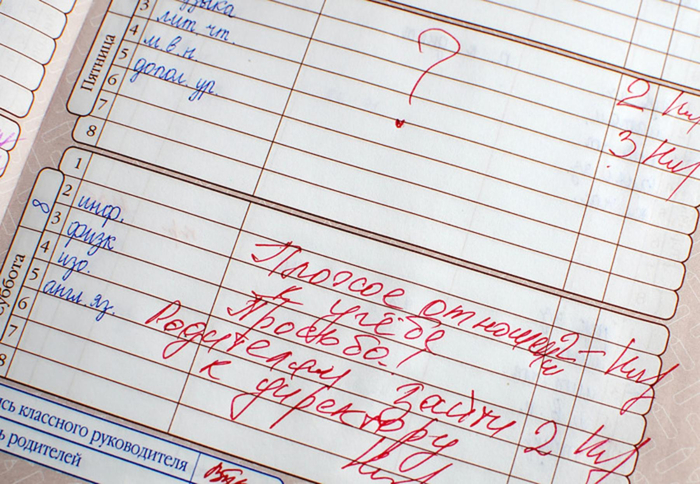 Пятница
языка
лит. чт.
4
м в н.
5
допол. ур.
6
7
8
?
2
3
Суббота
1
2 инф.
3 физк
4 изо.
5 англ. яз.
6
7
8
Плохое отношени
е 2-
к учёбе
Просьба!
Родителям зайти 2
к директору
классного руководителя
родителей